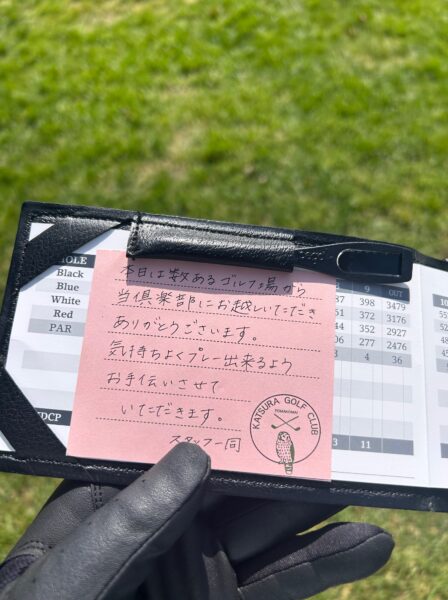 本日は数あるゴルフ場から
当倶楽部にお越しいただき
ありがとうございます。
気持ちよくプレー出来るよう
お手伝いさせて
いただきます。
スタッフ一同
KATSURA GOLF CLUB
TOMAKOMAI
HOLE
Black
Blue
White
Red
PAR
HDCP
9 OUT
398 3479
372 3176
352 2927
277 2476
4 36
3 11
10